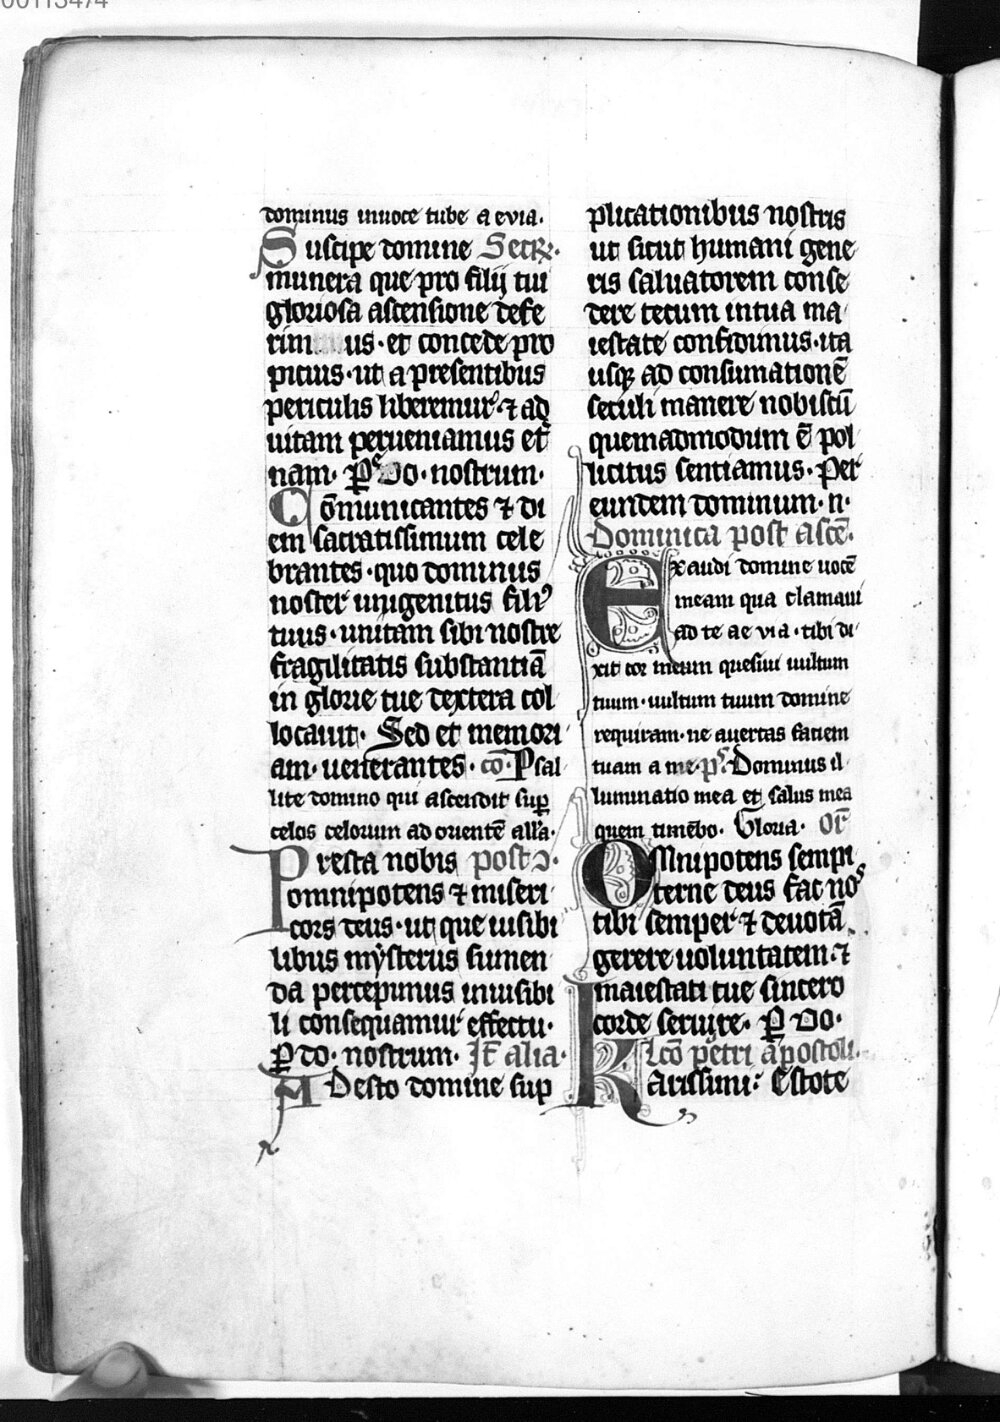 00113474
dominus in uoce tube a euia.
Suscipe domine Secr.
munera que pro filij tui
gloriosa ascensione defe
rim us. et concede pro
picius. ut a presentibus
periculis liberemur. ⁊ ad
uitam perueniamus et
nam. P Do. nostrum.
Cōmunicantes ⁊ di
em sacratissimum cele
brantes. quo dominus
noster unigenitus fili9
tuus. unitam sibi nostre
fragilitatis substantiā
in glorie tue dextera col
locauit. Sed et memori
am. uenerantes. cō. Psal
lite domino qui ascendit suꝑ
celos celorum ad orientē all'a.
Presta nobis postↄ.
omnipotens ⁊ miseri
cors deus. ut que uisibi
libus mÿsterijs sumen
da percepimus inuisibi
li consequamur effectu.
ꝑ do. nostrum. It alia.
ADesto domine sup
plicationibus nostris
ut sicut humani gene
ris saluatorem conse
dere tecum in tua ma
iestate confidimus. ita
usqꝫ ad consumationē
seculi manere nobiscū
quemadmodum ē pol
licitus sentiamus. Per
eundem dominum. n.
Dominica post ascē.
Exaudi domine uocē
meam qua clamaui
ad te ae via. tibi di
xit cor meum quesiui uultum
tuum. uultum tuum domine
requiram. ne auertas faciem
tuam a me. ps. Dominus il
luminatio mea et salus mea
quem timebo. Gloria. or̄
OMnipotens sempi
terne deus fac nos
tibi semper ⁊ deuotā
gerere uoluntatem. ⁊
maiestati tue sincero
corde seruire. ꝑ Do.
Lcō petri apostoli.
Karissimi: Estote